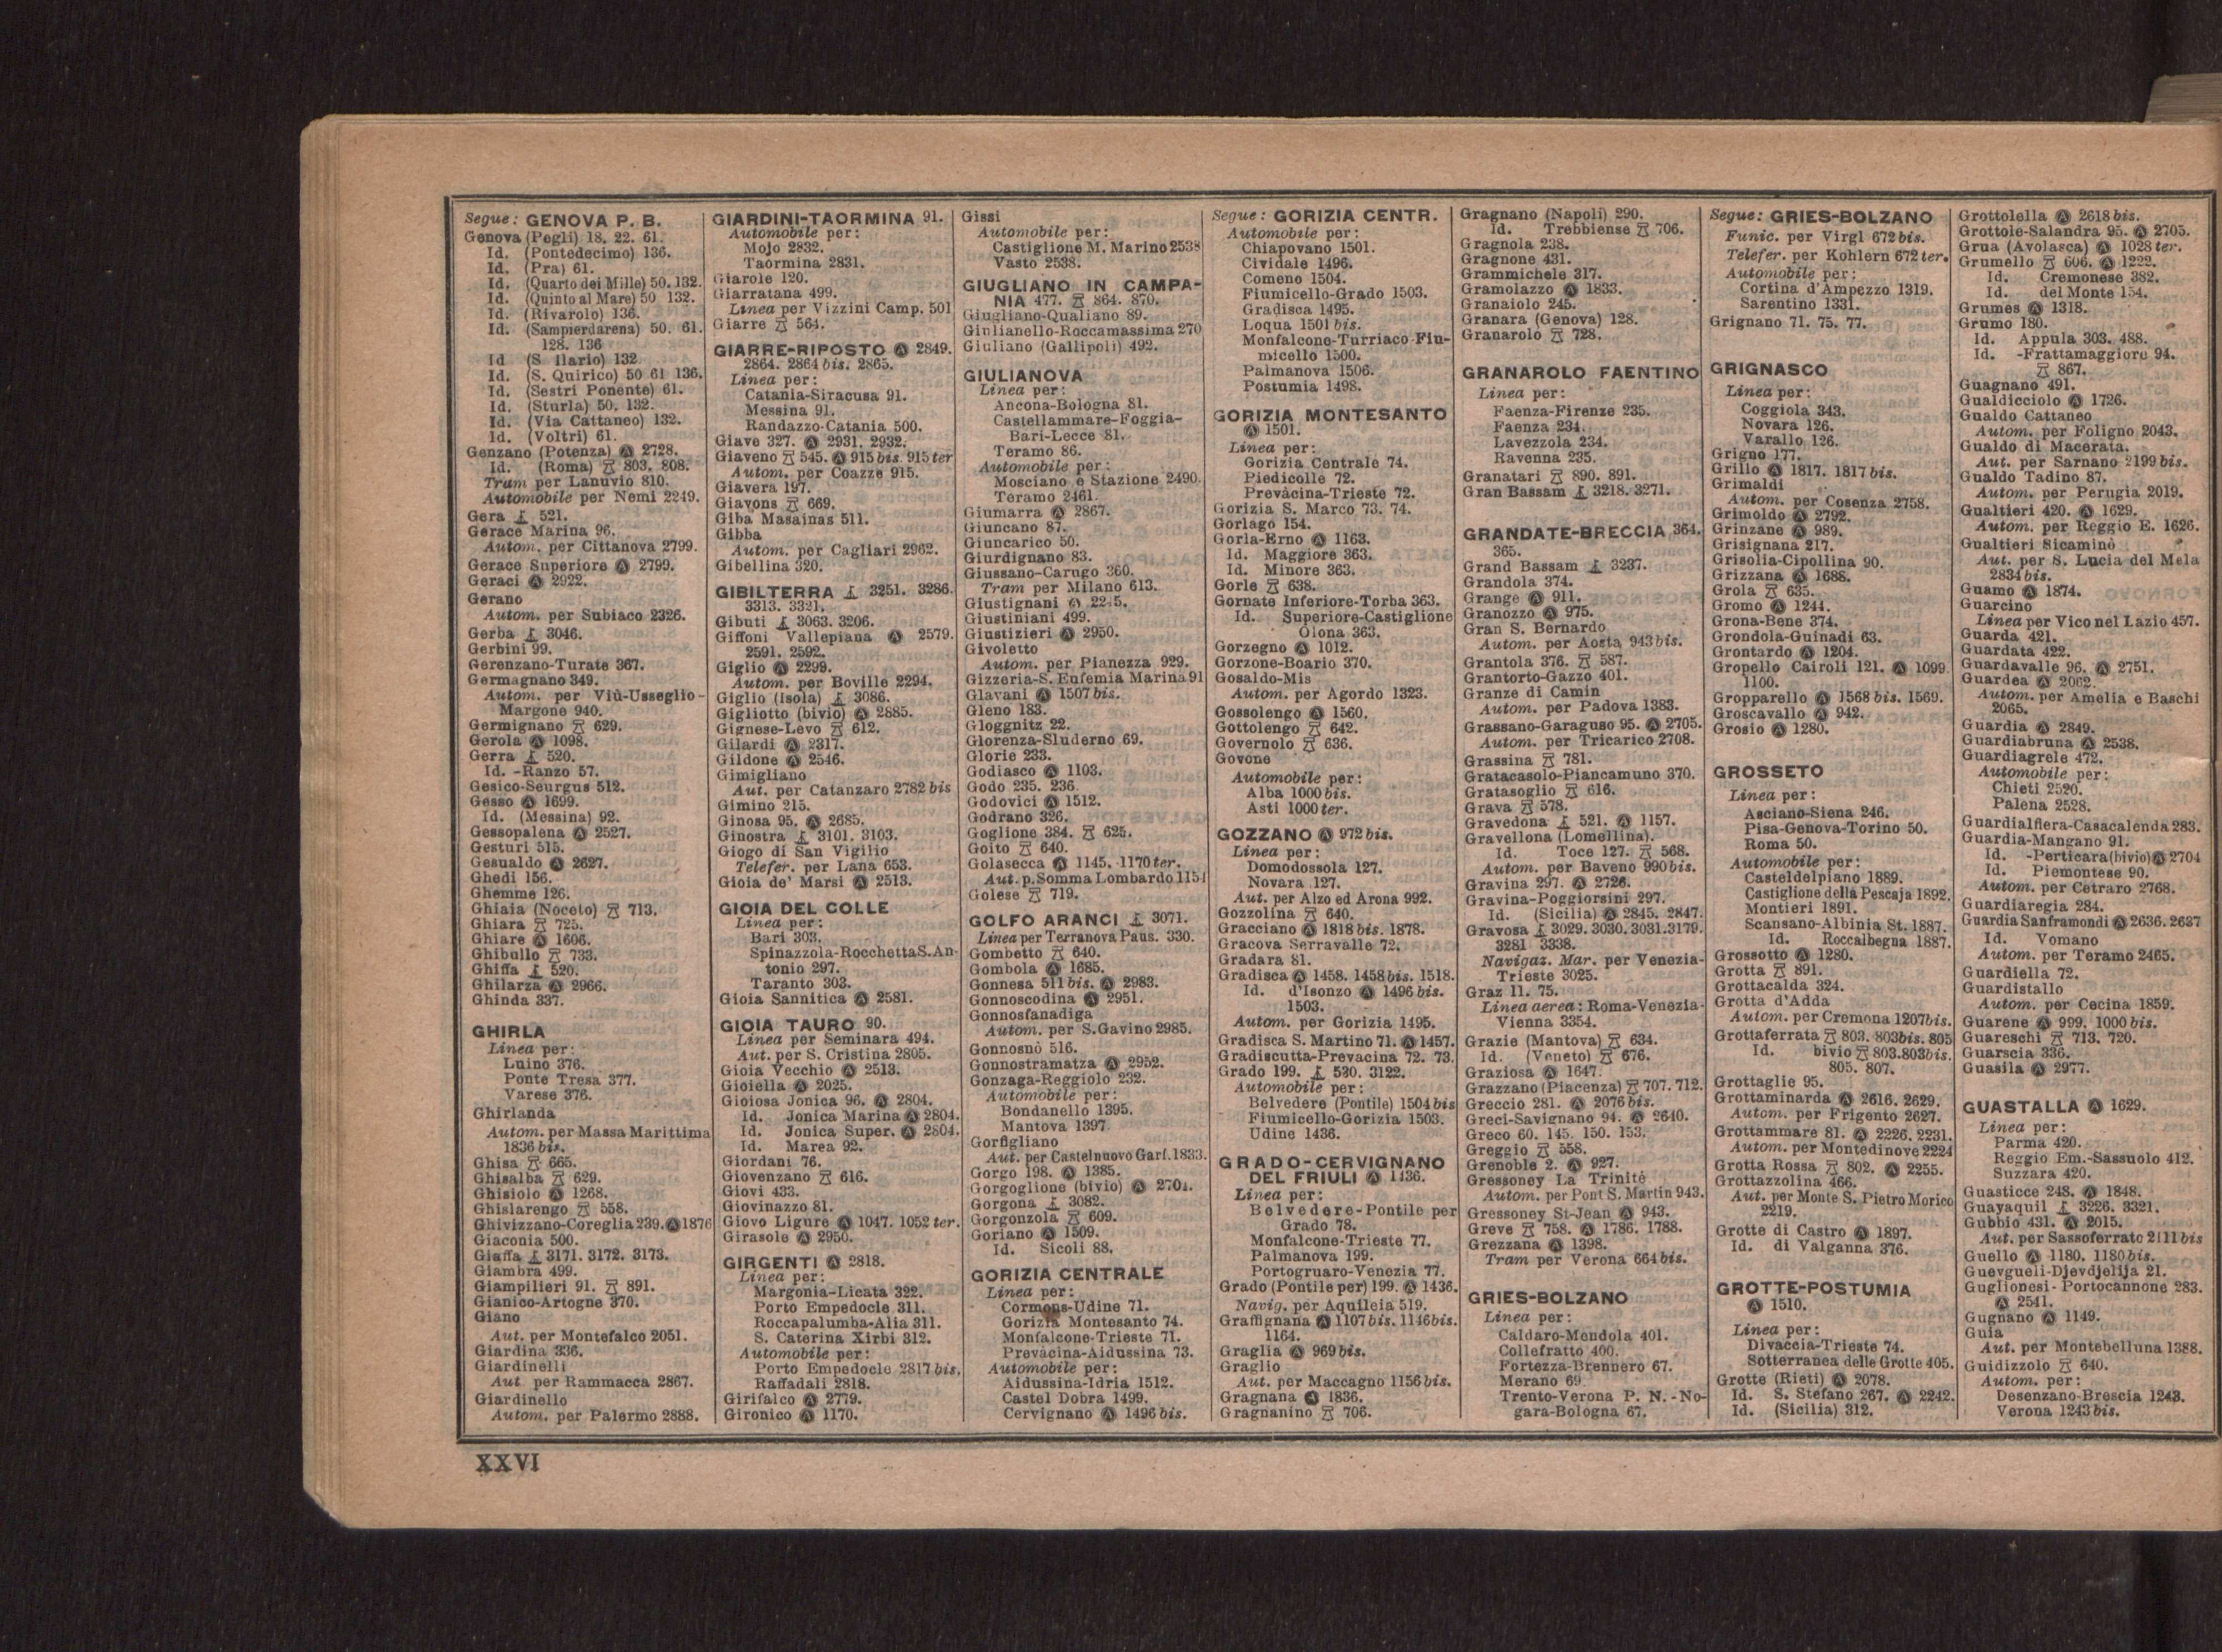 Segue: GENOVA P. B.
Genova (Pegli) 18. 22. 61.
Id. (Pontedecimo) 136.
Id. (Pra) 61.
Id. (Quarto dei Mille) 50. 132.
Id. (Quinto al Mare) 50 132.
Id. (Rivarolo) 136.
Id. (Sampierdarena) 50. 61.
128. 136
Id (S Ilario) 132
Id. (S. Quirico) 50 61 136.
Id. (Sestri Ponente) 61.
Id. (Sturla) 50. 132.
Id. (Via Cattaneo) 132.
Id. (Voltri) 61.
Genzano (Potenza) Ⓐ 2728.
Id. (Roma) 803. 808.
Tram per Lanuvio 810.
Automobile per Nemi 2249.
Gera 521.
Gerace Marina 96.
Autom. per Cittanova 2799.
Gerace Superiore Ⓐ 2799.
Geraci Ⓐ 2922.
Gerano
Autom. per Subiaco 2326.
Gerba 3046.
Gerbini 99.
Gerenzano-Turate 367.
Germagnano 349.
Autom. per Viù-Usseglio-
Margone 940.
Germignano 629.
Gerola Ⓐ 1098.
Gerra 520.
Id. -Ranzo 57.
Gesico-Seurgus 512.
Gesso Ⓐ 1699.
Id. (Messina) 92.
Gessopalena Ⓐ 2527.
Gesturi 515.
Gesualdo Ⓐ 2627.
Ghedi 156.
Ghemme 126.
Ghiaia (Noceto) 713.
Ghiara 725.
Ghiare Ⓐ 1606.
Ghibullo 733.
Ghiffa 520.
Ghilarza Ⓐ 2966.
Ghinda 337.
GHIRLA
Linea per:
Luino 376.
Ponte Tresa 377.
Varese 376.
Ghirlanda
Autom. per Massa Marittima
1836 bis.
Ghisa 665.
Ghisalba 629.
Ghisiolo Ⓐ 1268.
Ghislarengo 558.
Ghivizzano-Coreglia 239. Ⓐ 1876
Giaconia 500.
Giaffa 3171. 3172. 3173.
Giambra 499.
Giampilieri 91. 891.
Gianico-Artogne 370.
Giano
Aut. per Montefalco 2051.
Giardina 336.
Giardinelli
Aut per Rammacca 2867.
Giardinello
Autom. per Palermo 2888.
GIARDINI-TAORMINA 91.
Automobile per:
Mojo 2832.
Taormina 2831.
Giarole 120.
Giarratana 499.
Linea per Vizzini Camp. 501
Giarre 564.
GIARRE-RIPOSTO Ⓐ 2849.
2864. 2864 bis. 2865.
Linea per:
Catania-Siracusa 91.
Messina 91.
Randazzo-Catania 500.
Giave 327. Ⓐ 2931. 2932.
Giaveno 545. Ⓐ 915 bis. 915 ter
Autom. per Coazze 915.
Giavera 197.
Giavons 669.
Giba Masainas 511.
Gibba
Autom. per Cagliari 2962.
Gibellina 320.
GIBILTERRA 3251. 3286.
3313. 3321.
Gibuti 3063. 3206.
Giffoni Vallepiana Ⓐ 2579.
2591. 2592.
Giglio Ⓐ 2299.
Autom. per Boville 2294.
Giglio (Isola) 3086.
Gigliotto (bivio) Ⓐ 2885.
Gignese-Levo 612.
Gilardi Ⓐ 2317.
Gildone Ⓐ 2546.
Gimigliano
Aut. per Catanzaro 2782 bis
Gimino 215.
Ginosa 95. Ⓐ 2685.
Ginostra 3101. 3103.
Giogo di San Vigilio
Telefer. per Lana 653.
Gioia de' Marsi Ⓐ 2513.
GIOIA DEL COLLE
Linea per:
Bari 303.
Spinazzola-Rocchetta S. An-
tonio 297.
Taranto 303.
Gioia Sannitica Ⓐ 2581.
GIOIA TAURO 90.
Linea per Seminara 494.
Aut. per S. Cristina 2805.
Gioia Vecchio Ⓐ 2513.
Gioiella Ⓐ 2025.
Gioiosa Jonica 96. Ⓐ 2804.
Id. Jonica Marina Ⓐ 2804.
Id. Jonica Super. Ⓐ 2804.
Id. Marea 92.
Giordani 76.
Giovenzano 616.
Giovi 433.
Giovinazzo 81.
Giovo Ligure Ⓐ 1047. 1052 ter.
Girasole Ⓐ 2950.
GIRGENTI Ⓐ 2818.
Linea per:
Margonia-Licata 322.
Porto Empedocle 311.
Roccapalumba-Alia 311.
S. Caterina Xirbi 312.
Automobile per:
Porto Empedocle 2817 bis.
Raffadali 2818.
Girifalco Ⓐ 2779.
Gironico Ⓐ 1170.
Gissi
Automobile per:
Castiglione M. Marino 2538
Vasto 2538.
GIUGLIANO IN CAMPA-
NIA 477. 864. 870.
Giugliano-Qualiano 89.
Giulianello-Roccamassima 270
Giuliano (Gallipoli) 492.
GIULIANOVA
Linea per:
Ancona-Bologna 81.
Castellammare-Foggia-
Bari-Lecce 81.
Teramo 86.
Automobile per:
Mosciano e Stazione 2490.
Teramo 2461.
Giumarra Ⓐ 2867.
Giuncano 87.
Giuncarico 50.
Giurdignano 83.
Giussano-Carugo 360.
Tram per Milano 613.
Giustignani Ⓐ
Giustiniani 499.
Giustizieri Ⓐ 2950.
Givoletto
Autom. per Pianezza 929.
Gizzeria-S. Eufemia Marina 91
Glavani Ⓐ 1507 bis.
Gleno 183.
Gloggnitz 22.
Glorenza-Sluderno 69.
Glorie 233.
Godiasco Ⓐ 1103.
Godo 235. 236.
Godovici Ⓐ 1512.
Godrano 326.
Goglione 384. 625.
Goito 640.
Golasecca Ⓐ 1145. 1170 ter.
Aut. p. Somma Lombardo 1151
Golese 719.
GOLFO ARANCI 3071.
Linea per Terranova Paus. 330.
Gombetto 640.
Gombola Ⓐ 1685.
Gonnesa 511 bis. Ⓐ 2983.
Gonnoscodina Ⓐ 2951.
Gonnosfanadiga
Autom. per S. Gavino 2985.
Gonnosnò 516.
Gonnostramatza Ⓐ 2952.
Gonzaga-Reggiolo 232.
Automobile per:
Bondanello 1395.
Mantova 1397
Gorfigliano
Aut. per Castelnuovo Garf. 1833.
Gorgo 198. Ⓐ 1385.
Gorgoglione (bivio) Ⓐ 2701.
Gorgona 3082.
Gorgonzola 609.
Goriano Ⓐ 1509.
Id. Sicoli 88.
GORIZIA CENTRALE
Linea per:
Cormons-Udine 71.
Gorizia Montesanto 74.
Monfalcone-Trieste 71.
Prevàcina-Aidussina 73.
Automobile per:
Aidussina-Idria 1512.
Castel Dobra 1499.
Cervignano Ⓐ 1496 bis.
Segue: GORIZIA CENTR.
Automobile per:
Chiapovano 1501.
Cividale 1496.
Comeno 1504.
Fiumicello-Grado 1503.
Gradisca 1495.
Loqua 1501 bis.
Monfalcone-Turriaco-Fiu-
micello 1500.
Palmanova 1506.
Postumia 1498.
GORIZIA MONTESANTO
Ⓐ 1501.
Linea per:
Gorizia Centrale 74.
Piedicolle 72.
Prevàcina-Trieste 72.
Gorizia S. Marco 73. 74.
Gorlago 154.
Gorla-Erno Ⓐ 1163.
Id. Maggiore 363.
Id. Minore 363.
Gorle 638.
Gornate Inferiore-Torba 363.
Id. Superiore-Castiglione
Olona 363.
Gorzegno Ⓐ 1012.
Gorzone-Boario 370.
Gosaldo-Mis
Autom. per Agordo 1323.
Gossolengo Ⓐ 1560.
Gottolengo 642.
Governolo 636.
Govone
Automobile per:
Alba 1000 bis.
Asti 1000 ter.
GOZZANO Ⓐ 972 bis.
Linea per:
Domodossola 127.
Novara 127.
Aut. per Alzo ed Arona 992.
Gozzolina 640.
Gracciano Ⓐ 1818 bis. 1878.
Gracova Serravalle 72.
Gradara 81.
Gradisca Ⓐ 1458. 1458 bis. 1518.
Id. d'Isonzo Ⓐ 1496 bis.
1503.
Autom. per Gorizia 1495.
Gradisca S. Martino 71. Ⓐ 1457.
Gradiscutta-Prevacina 72. 73.
Grado 199. 530. 3122.
Automobile per:
Belvedere (Pontile) 1504 bis
Fiumicello-Gorizia 1503.
Udine 1436.
GRADO-CERVIGNANO
DEL FRIULI Ⓐ 1436.
Linea per:
Belvedere-Pontile per
Grado 78.
Monfalcone-Trieste 77.
Palmanova 199.
Portogruaro-Venezia 77.
Grado (Pontile per) 199. Ⓐ 1436.
Navig. per Aquileia 519.
Graffignana Ⓐ 1107 bis. 1146 bis.
1164.
Graglia Ⓐ 969 bis.
Graglio
Aut. per Maccagno 1156 bis.
Gragnana Ⓐ 1836.
Gragnanino 706.
Gragnano (Napoli) 290.
Id. Trebbiense 706.
Gragnola 238.
Gragnone 431.
Grammichele 317.
Gramolazzo Ⓐ 1833.
Granaiolo 245.
Granara (Genova) 128.
Granarolo 728.
GRANAROLO FAENTINO
Linea per:
Faenza-Firenze 235.
Faenza 234.
Lavezzola 234.
Ravenna 235.
Granatari 890. 891.
Gran Bassam 3218. 3271.
GRANDATE-BRECCIA 364.
365.
Grand Bassam 3237.
Grandola 374.
Grange Ⓐ 911.
Granozzo Ⓐ 975.
Gran S. Bernardo
Autom. per Aosta 943 bis.
Grantola 376. 587.
Grantorto-Gazzo 401.
Granze di Camin
Autom. per Padova 1383.
Grassano-Garaguso 95. Ⓐ 2705.
Autom. per Tricarico 2708.
Grassina 781.
Gratacasolo-Piancamuno 370.
Gratasoglio 616.
Grava 578.
Gravedona 521. Ⓐ 1157.
Gravellona (Lomellina).
Id. Toce 127. 568.
Autom. per Baveno 990 bis.
Gravina 297. Ⓐ 2726.
Gravina-Poggiorsini 297.
Id. (Sicilia) Ⓐ 2845. 2847.
Gravosa 3029. 3030. 3031. 3179.
3281 3338.
Navigaz. Mar. per Venezia-
Trieste 3025.
Graz 11. 75.
Linea aerea: Roma-Venezia-
Vienna 3354.
Grazie (Mantova) 634.
Id. (Veneto) 676.
Graziosa Ⓐ 1647.
Grazzano (Piacenza) 707. 712.
Greccio 281. Ⓐ 2076 bis.
Greci-Savignano 94. Ⓐ 2640.
Greco 60. 145. 150. 153.
Greggio 558.
Grenoble 2. Ⓐ 927.
Gressoney La Trinité
Autom. per Pont S. Martin 943.
Gressoney St-Jean Ⓐ 943.
Greve 758. Ⓐ 1786. 1788.
Grezzana Ⓐ 1398.
Tram per Verona 664 bis.
GRIES-BOLZANO
Linea per:
Caldaro-Mendola 401.
Collefratto 400.
Fortezza-Brennero 67.
Merano 69
Trento-Verona P. N.-No-
gara-Bologna 67.
Segue: GRIES-BOLZANO
Funic. per Virgl 672 bis.
Telefer. per Kohlern 672 ter.
Automobile per:
Cortina d'Ampezzo 1319.
Sarentino 1331.
Grignano 71. 75. 77.
GRIGNASCO
Linea per:
Coggiola 343.
Novara 126.
Varallo 126.
Grigno 177.
Grillo Ⓐ 1817. 1817 bis.
Grimaldi
Autom. per Cosenza 2758.
Grimoldo Ⓐ 2792.
Grinzane Ⓐ 989.
Grisignana 217.
Grisolia-Cipollina 90.
Grizzana Ⓐ 1688.
Grola 635.
Gromo Ⓐ 1244.
Grona-Bene 374.
Grondola-Guinadi 63.
Grontardo Ⓐ 1204.
Gropello Cairoli 121. Ⓐ 1099
1100.
Gropparello Ⓐ 1568 bis. 1569.
Groscavallo Ⓐ 942.
Grosio Ⓐ 1280.
GROSSETO
Linea per:
Asciano-Siena 246.
Pisa-Genova-Torino 50.
Roma 50.
Automobile per:
Casteldelpiano 1889.
Castiglione della Pescaja 1892.
Montieri 1891.
Scansano-Albinia St. 1887.
Id. Roccalbegna 1887.
Grossotto Ⓐ 1280.
Grotta 891.
Grottacalda 324.
Grotta d'Adda
Autom. per Cremona 1207 bis.
Grottaferrata 803. 803 bis. 805
Id. bivio 803. 803 bis.
805. 807.
Grottaglie 95.
Grottaminarda Ⓐ 2616. 2629.
Autom. per Frigento 2627.
Grottammare 81. Ⓐ 2226. 2231.
Autom. per Montedinove 2224
Grotta Rossa 802. Ⓐ 2255.
Grottazzolina 466.
Aut. per Monte S. Pietro Morico
2219.
Grotte di Castro Ⓐ 1897.
Id. di Valganna 376.
GROTTE-POSTUMIA
Ⓐ 1510.
Linea per:
Divaccia-Trieste 74.
Sotterranea delle Grotte 405.
Grotte (Rieti) Ⓐ 2078.
Id. S. Stefano 267. Ⓐ 2242.
Id. (Sicilia) 312.
Grottolella Ⓐ 2618 bis.
Grottole-Salandra 95. Ⓐ 2705.
Grua (Avolasca) Ⓐ 1028 ter.
Grumello 606. Ⓐ 1222.
Id. Cremonese 382.
Id. del Monte 154.
Grumes Ⓐ 1318.
Grumo 180.
Id. Appula 303. 488.
Id. -Frattamaggiore 94.
867.
Guagnano 491.
Gualdicciolo Ⓐ 1726.
Gualdo Cattaneo
Autom. per Foligno 2043.
Gualdo di Macerata.
Aut. per Sarnano 2199 bis.
Gualdo Tadino 87.
Autom. per Perugia 2019.
Gualtieri 420. Ⓐ 1629.
Autom. per Reggio E. 1626.
Gualtieri Sicaminò
Aut. per S. Lucia del Mela
2834 bis.
Guamo Ⓐ 1874.
Guarcino
Linea per Vico nel Lazio 457.
Guarda 421.
Guardata 422.
Guardavalle 96. Ⓐ 2751.
Guardea Ⓐ 2062.
Autom. per Amelia e Baschi
2065.
Guardia Ⓐ 2849.
Guardiabruna Ⓐ 2538.
Guardiagrele 472.
Automobile per:
Chieti 2520.
Palena 2528.
Guardialfiera-Casacalenda 283.
Guardia-Mangano 91.
Id. -Perticara (bivio) Ⓐ 2704
Id. Piemontese 90.
Autom. per Cetraro 2768.
Guardiaregia 284.
Guardia Sanframondi Ⓐ 2636. 2637
Id. Vomano
Autom. per Teramo 2465.
Guardiella 72.
Guardistallo
Autom. per Cecina 1859.
Guarene Ⓐ 999. 1000 bis.
Guareschi 713. 720.
Guarscia 336.
Guasila Ⓐ 2977.
GUASTALLA Ⓐ 1629.
Linea per:
Parma 420.
Reggio Em.-Sassuolo 412.
Suzzara 420.
Guasticce 248. Ⓐ 1848.
Guayaquil 3226. 3321.
Gubbio 431. Ⓐ 2015.
Aut. per Sassoferrato 2111 bis
Guello Ⓐ 1180. 1180 bis.
Guevgueli-Djevdjelija 21.
Guglionesi-Portocannone 283.
Ⓐ 2541.
Gugnano Ⓐ 1149.
Guia
Aut. per Montebelluna 1388.
Guidizzolo 640.
Autom. per:
Desenzano-Brescia 1243.
Verona 1243 bis.
XXVI